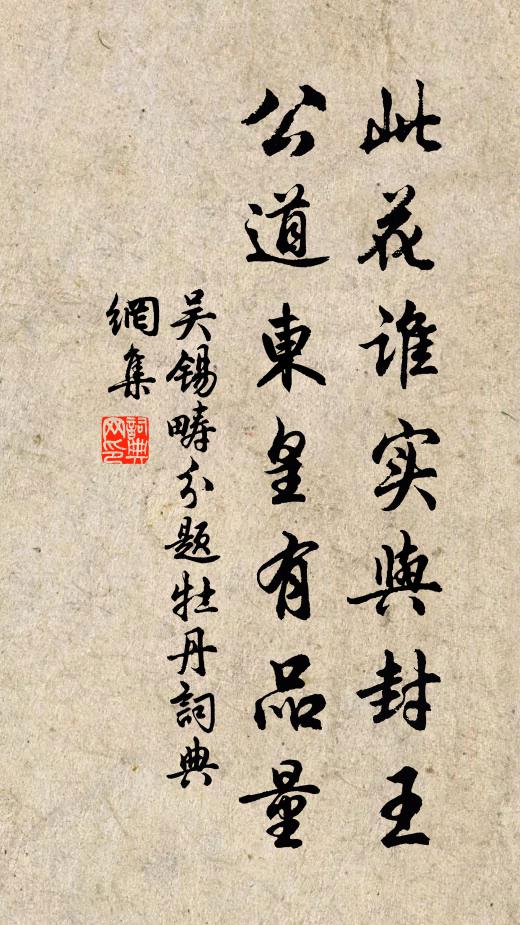 此花谁实與封王
公道東皇有品量
吴锡疇分题牡丹詞典
網集
詞典网印